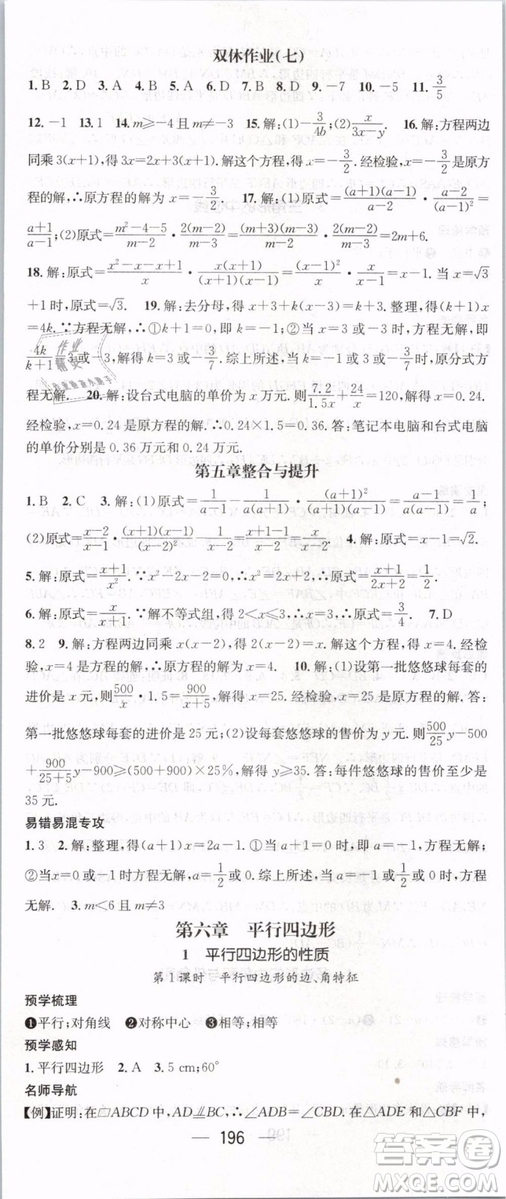 双休作业(七)
1. B 2. D 3. A 4. A 5. A 6. D 7. D 8. D 9. -7 10. -5 11. 3/5
12. -1 13. 1 14. m≥-4且m≠-3 15. 解:(1)-3/(Ab);(2)x/(3x-y). 16. 解:方程两边
同乘3(x+1),得3x=2x+3(x+1),得x=-3/2. 经检验,x=-3/2是原方
程的解,∴原方程的解为x=-3/2. 17. 解:(1)原式=(a+1)(a-1)/(a-1)²=
(a+1)/(a-1);(2)原式=(m²-4-5)/(m-2)·2(m-2)/(m-3)=(m+3)(m-3)/(m-2)·2(m-2)/(m-3)=2m+6.
18. 解:原式=(x²-x-x+1)/x·x/(x-1)=(x-1)²/x·x/(x-1)=x-1. 当x=√3
+1时,原式=√3. 19. 解:去分母,得x+3+k(x-3)=k+3. 整理,得(k+1)
x=4k. ∵方程无解,∴①k+1=0,此时k=-1;②x=±3,此时
4k/(k+1)=3或-3,得k=-3或k=-3/7. 综上所述,当k=-1或-3或-3/7时,原分式方
程无解. 20. 解:设台式电脑的单价为x万元,则7.2/(1.5x)+24/x=120,解得x=0.24.
经检验,x=0.24是方程的解,且1.5x=0.36. 答:笔记本电脑和台式电脑
的单价分别是0.36万元和0.24万元.
第五章整合与提升
1. B 2. C 3. 解:(1)原式=1/(a-1)-(a+1)/(a(a-1))·(a+1)(a-1)/(a+1)²=1/(a-1)-1/a(a-1)=1/a;
(2)原式=(x-2)/(x-1)·(x+1)(x-1)/(x-2)²=(x+1)/(x-2). 4. 解:原式=(x-1)/x. 当x=√3
5. 解:原式=1/(x(x+1))=1/(x²+x). ∵x²+x-2=0,∴x²+x=2. ∴原式=1/(x²+x)=1/2.
6. 解:原式=x/(x+1). ∵解不等式组,得2<x≤3,∴取x=3. ∴原式=3/4. 7. D
8. 2 9. 解:方程两边同乘x(x-2),得2(x-2)=x. 解这个方程,得x=4. 经检
验,x=4是原方程的解,∴x=4. 10. 解:(1)设第一批悠悠球每套的
进价是x元,则500/x·1.5=900/(x+5),解得x=25. 经检验,x=25是方程的解. 答:
第一批悠悠球每套的进价是25元;(2)设每套悠悠球的售价为y元,则500/25 y-500
+900/(25+5) y-900≥(500+900)×25%,解得y≥35. 答:每件悠悠球的售价至少是
35元.
易错易混专攻
1. 3 2. 解:整理,得(a+1)x=2a. ∵方程无解,∴①a+1=0,得a=-1;②当
x=0或-1时方程无解,得a=1/2或a=0. 综上所述,当a=-1或1/2或0时,方
程无解. 3. m<6且m≠3
第六章 平行四边形
1 平行四边形的性质
第1课时 平行四边形的边、角特征
预学梳理
❶平行;对角线 ❷对称中心 ❸相等;相等
预学感知
1. 平行四边形 2. A 3. 5 cm;60°
名师导航
【例】证明:在▱ABCD中,AD=CB,∠A=∠C,AB=CD. 在△ADE和△CBF中,
196